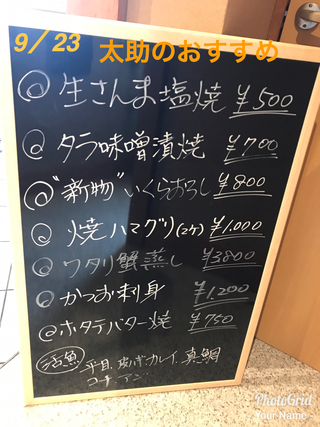 9/23 太助のおすすめ
◎生さんま塩焼 ¥500
◎タラ味噌漬焼 ¥700
◎"新物"いくらおろし ¥800
◎焼ハマグリ(2ケ) ¥1.000
◎ワタリ蟹蒸し ¥3800
◎かつお刺身 ¥1.200
◎ホタテバター焼 ¥750
活魚 平目、カレイ、真鯛
コチ、アジ
PhotoGrid
Your Name